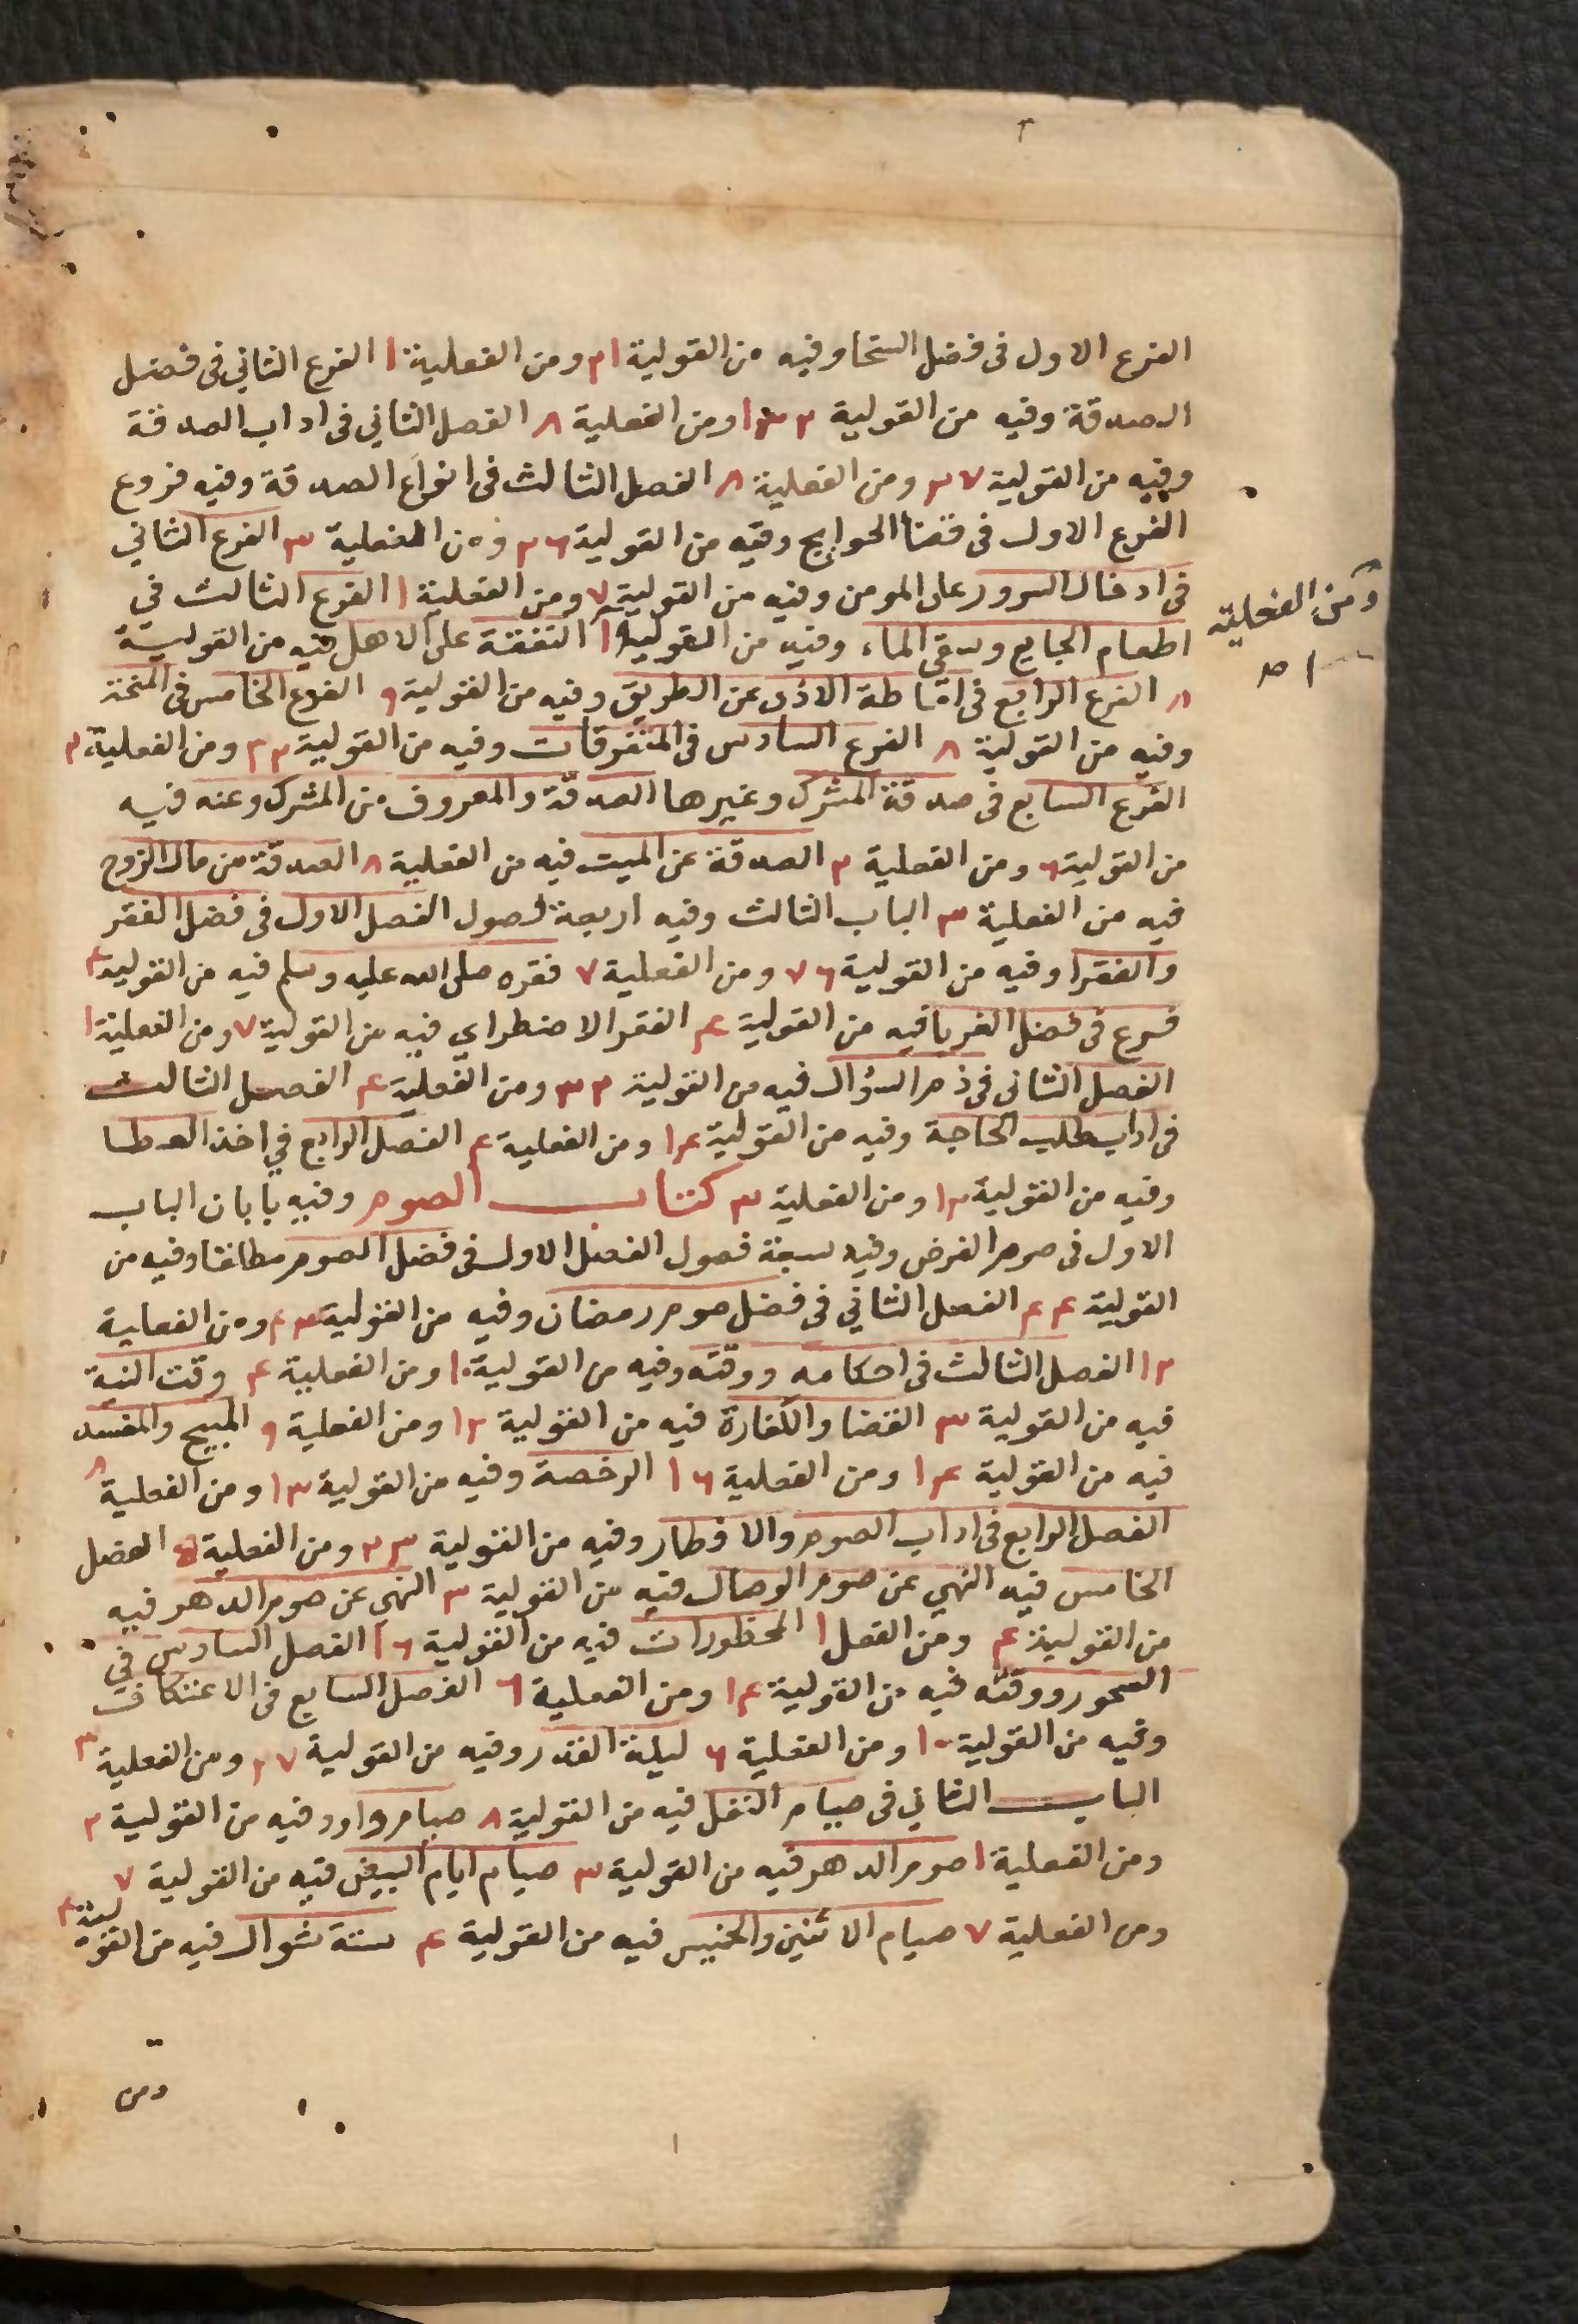 الفرع الاول فى فضل السخا وفيه من القولية ٢١ ومن الفعلية ١ الفرع الثاني فى فضل
الصدقة وفيه من القولية ومن الفعلية ٨ الفصل الثاني فى اداب الصدقة
وفيه من القولية ٢٧ ومن الفعلية ٨ الفصل الثالث فى انواع الصدقة وفيه فروع
الفرع الاول فى قضا الحوايج وفيه من القولية ٢٦ ومن الفعلية ٣ الفرع الثاني
فى ادخال السرور على المومن وفيه من القولية ٧ ومن الفعلية ١ الفرع الثالث في
اطعام الجايع وسقى الماء وفيه من القولية النفقة على الاهل فيه من القولية
٨ الفرع الرابع فى اماطة الاذى عن الطريق وفيه من القولية ٩ الفرع الخامس فى المنحة
وفيه من القولية ٨ الفرع السادس فى المتفرقات وفيه من القولية ٢٣ ومن الفعلية ٢
الفرع السابع فى صدقة المشرك وغيرها الصدقة والمعروف من المشرك وعنه فيه
من القولية ٦ ومن الفعلية ٢ الصدقة عن الميت فيه من الفعلية ٨ الصدقة من مال الزوج
فيه من الفعلية ٣ الباب الثالث وفيه اربعة فصول الفصل الاول فى فضل الفقر
والفقرا وفيه من القولية ٧٦ ومن الفعلية ٧ فقره صلى الله عليه وسلم فيه من القولية ٤
فرع فى فضل الغربا فيه من القولية ٤ الفقر الاضطراي فيه من القولية ٧ ومن الفعلية ١
الفصل الثانى فى ذم السؤال فيه من القولية ٣٢ ومن الفعلية ٤ الفصل الثالث
فى اداب طلب الحاجة وفيه من القولية ١٤ ومن الفعلية ٤ الفصل الرابع في اخذ العطا
وفيه من القولية ١٢ ومن الفعلية ٣ كتاب الصوم وفيه بابان الباب
الاول فى صوم الفرض وفيه سبعة فصول الفصل الاول فى فضل الصوم مطلقا وفيه من
القولية ٤٤ الفصل الثاني فى فضل صوم رمضان وفيه من القولية ٤٣ ومن الفعلية
١٢ الفصل الثالث فى احكامه ووقته وفيه من القولية ١٠ ومن الفعلية ٤ وقت النية
فيه من القولية ٣ القضا والكفارة فيه من القولية ١٢ ومن الفعلية ٩ المبيح والمفسد
فيه من القولية ١٤ ومن الفعلية ١٦ الرخصة وفيه من القولية ١٣ ومن الفعلية ٨
الفصل الرابع فى اداب الصوم والافطار وفيه من القولية ٢٣ ومن الفعلية ٥ الفصل
الخامس فيه النهي عن صوم الوصال فيه من القولية ٣ النهي عن صوم الدهر فيه
من القولية ٤ ومن الفعل ١ المحظورات فيه من القولية ١٦ الفصل السادس في
السحور ووقته فيه من القولية ١٤ ومن الفعلية ٦ الفصل السابع فى الاعتكاف
وفيه من القولية ١٠ ومن الفعلية ٦ ليلة القدر وفيه من القولية ٢٧ ومن الفعلية ٣
الباب الثاني فى صيام النفل فيه من القولية ٨ صيام داود وفيه من القولية ٢
ومن الفعلية ١ صوم الدهر فيه من القولية ٣ صيام ايام البيض فيه من القولية ٧
ومن الفعلية ٧ صيام الاثنين والخميس فيه من القولية ٤ ستة شوال فيه من القولية ٤
ومن
ومن الفعلية
١ صح